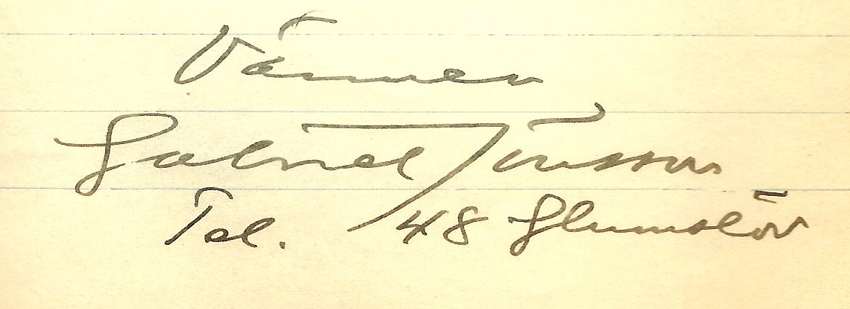 Vännen
Gabriel Jönsson
Tel. 48 Glumslöv